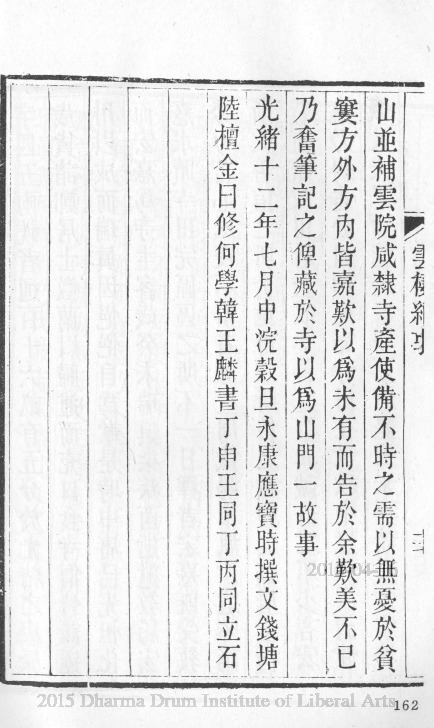 山並補雲院咸隸寺產使備不時之需以無憂於貧
窶方外方內皆嘉歎以爲未有而告於余歎美不已
乃奮筆記之俾藏於寺以爲山門一故事
光緒十二年七月中浣穀旦永康應寶時撰文錢塘
陸檀金曰修何學韓王麟書丁申王同丁丙同立石
2015 Dharma Drum Institute of Liberal Arts
162